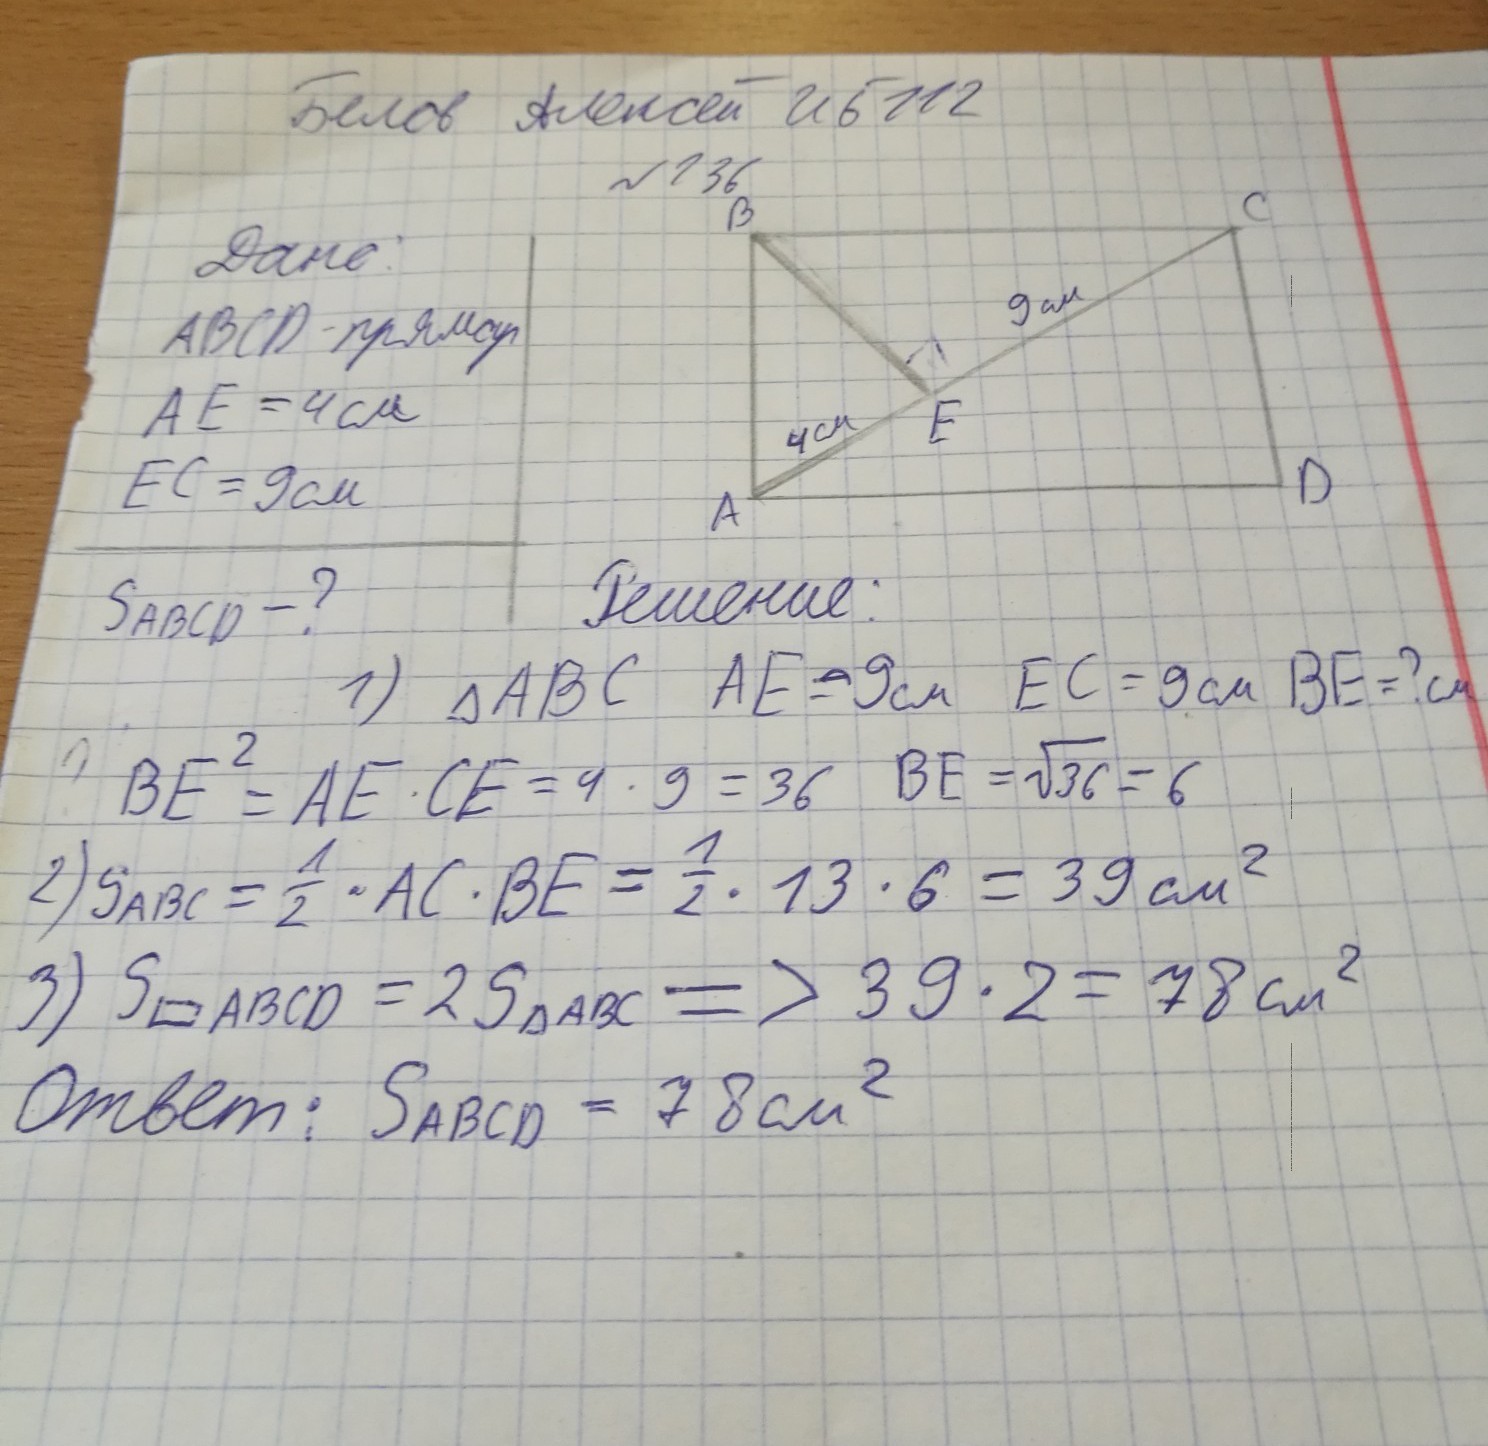 Белов Алексей ИБ112
№136
Дано:
ABCD - прямоуг
AE = 4см
EC = 9см
SABCD - ?
B
C
9см
4см
E
A
D
Решение:
1) △ABC AE = 9см EC = 9см BE = ?см
BE² = AE · CE = 4 · 9 = 36 BE = √36 = 6
2) SABC = 1/2 · AC · BE = 1/2 · 13 · 6 = 39 см²
3) S▭ABCD = 2S△ABC => 39 · 2 = 78 см²
Ответ: SABCD = 78 см²